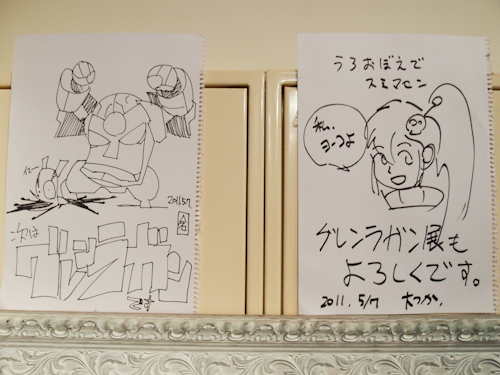 2011.5.7
今石
次は
グレンラガン
です
うろおぼえで
スミマセン
私、
ヨーコよ
グレンラガン展も
よろしくです。
2011. 5/7 大つか.